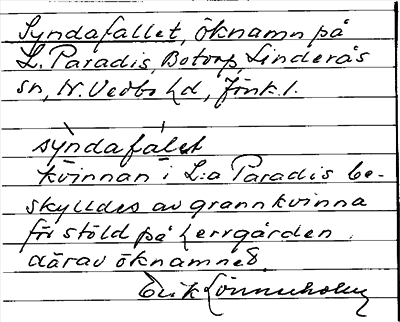 Syndafallet, öknamn på
L. Paradis, Botorp, Linderås
sn, N. Vedbo hd, Jönk. l.
syndafalet
kvinnan i L:a Paradis be-
skylldes av grannkvinna
för stöld på herrgården
därav öknamnet.
Erik Lönnerholm